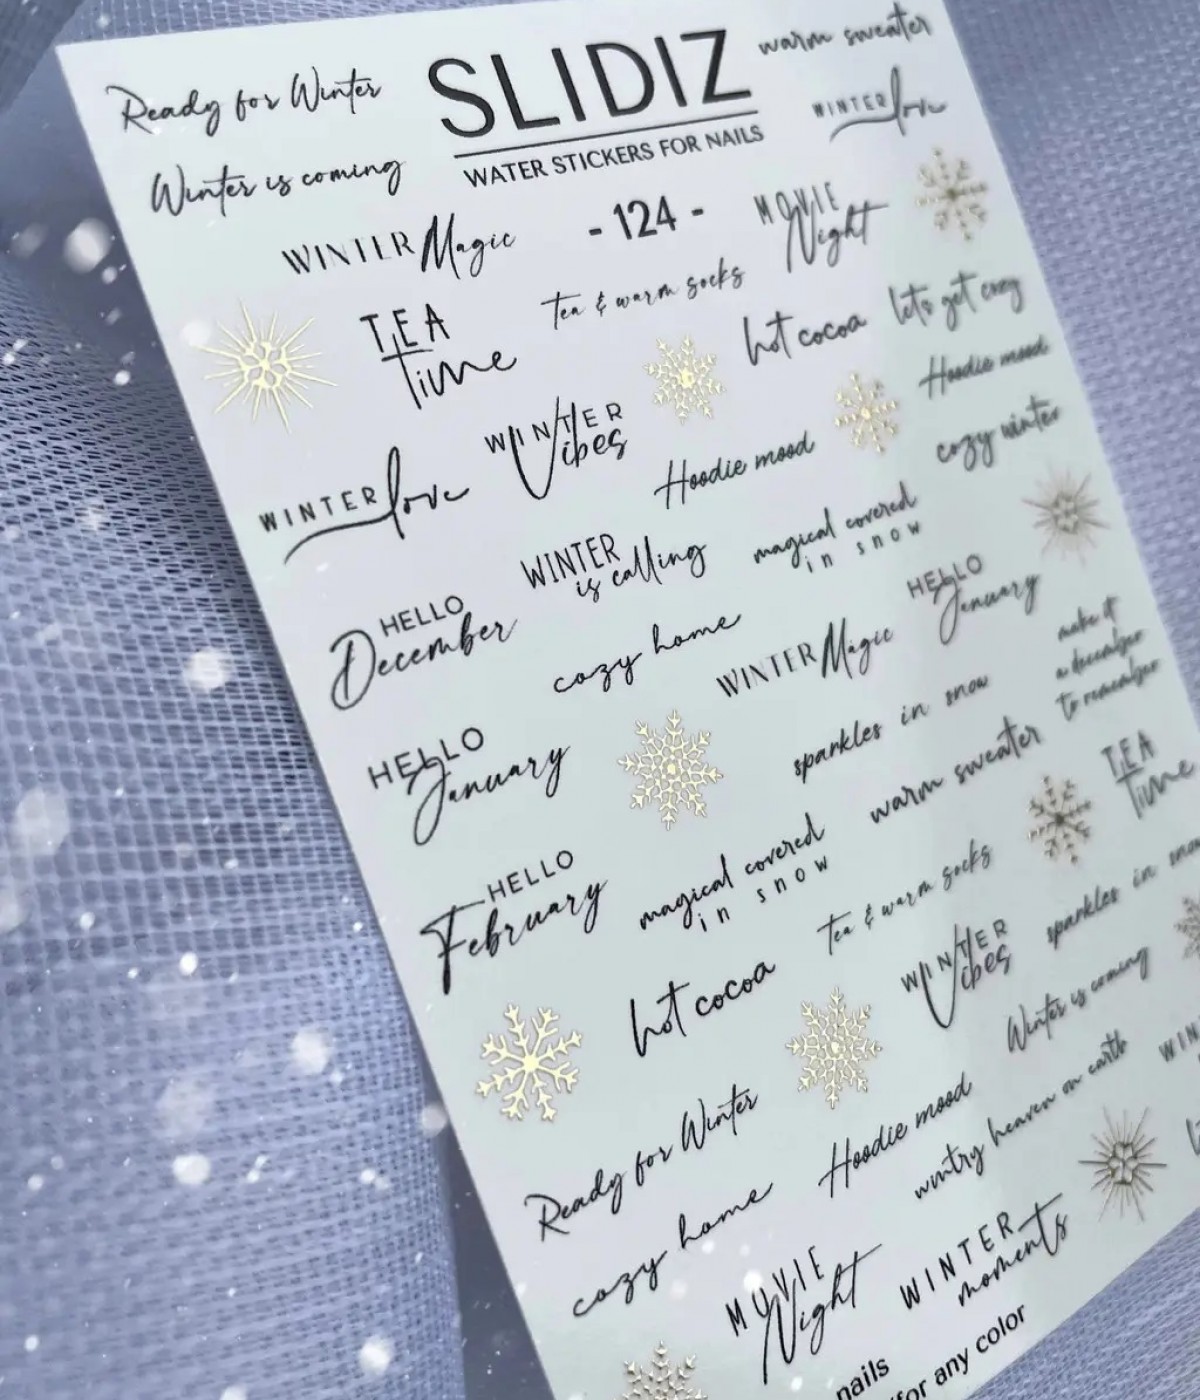 Ready for Winter
SLIDIZ
warm sweater
WATER STICKERS FOR NAILS
WINTER love
Winter is coming
WINTER Magic
- 124 -
MOVIE
Night
TEA
Time
tea & warm socks
hot cocoa
lets get cozy
Hoodie mood
WINTER love
WINTER
Vibes
Hoodie mood
cozy winter
WINTER
is calling
magical covered
in snow
HELLO
December
cozy home
WINTER Magic
HELLO
January
make it
a december
to remember
HELLO
January
sparkles in snow
warm sweater
TEA
Time
HELLO
February
magical covered
in snow
tea & warm socks
sparkles in snow
hot cocoa
WINTER
Vibes
Winter is coming
Ready for Winter
Hoodie mood
wintry heaven on earth
WIN
cozy home
MOVIE
Night
WINTER
moments
nails
for any color